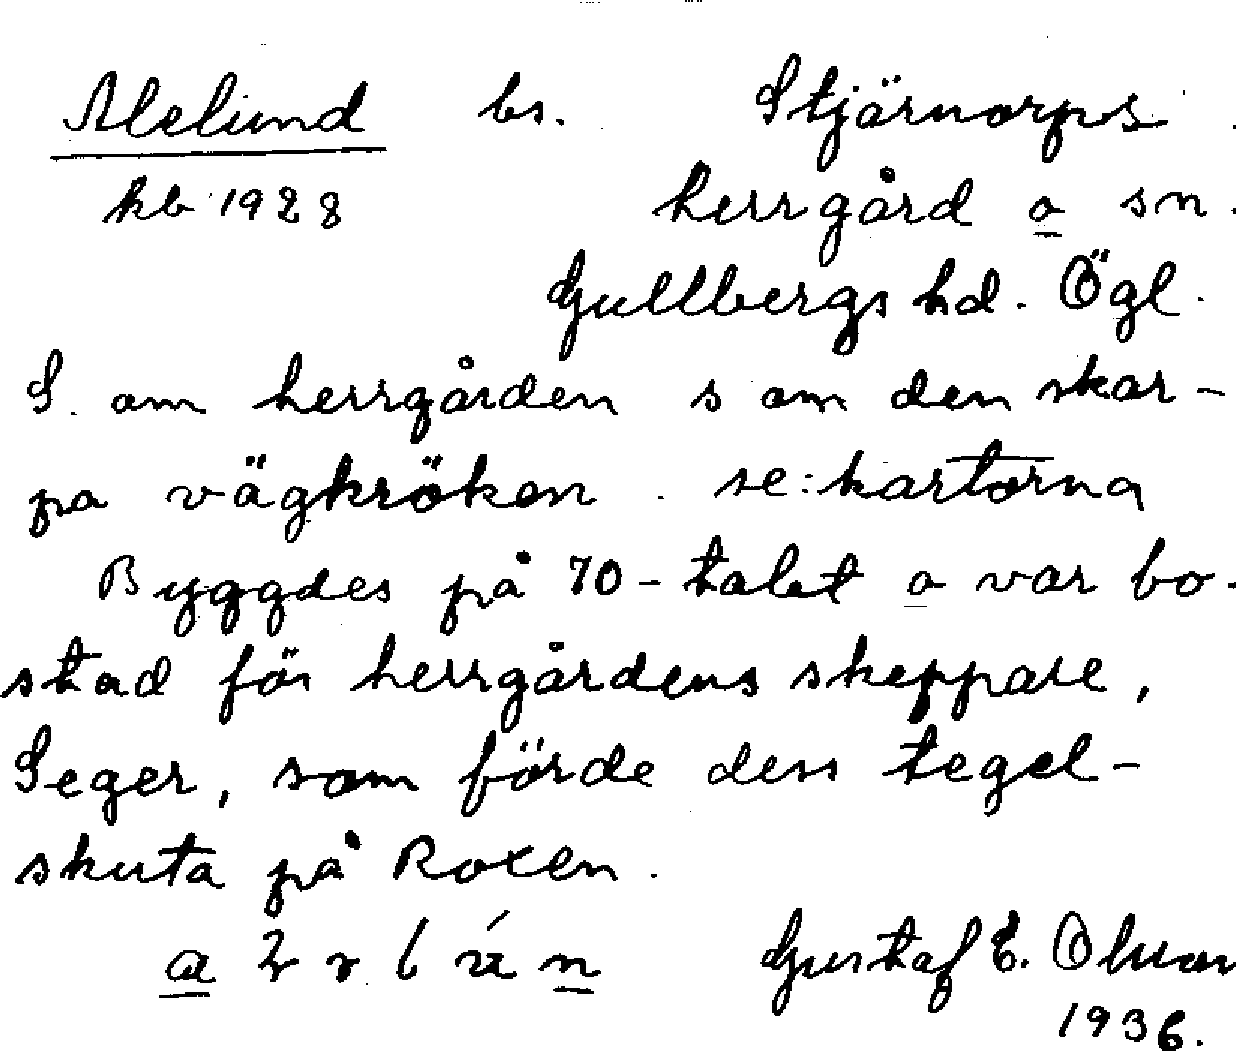 Alelund bs. Stjärnorps
kb 1928 herrgård o sn.
Gullbergs hd. Ögl.
S. om herrgården s om den skar-
pa vägkröken. se: kartorna
Byggdes på 70-talet o var bo-
stad för herrgårdens skeppare,
Seger, som förde dess tegel-
skuta på Roxen.
Gustaf E. Olsson
1936.